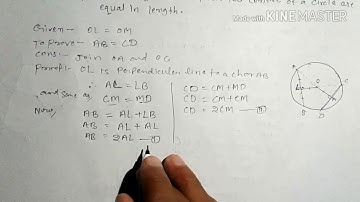 Made with KINEMASTER
center of a circle are
equal in length.
Given- OL = OM
To Prove- AB = CD
Cons:- Join OA and OC
Proof:- OL is Perpendicular line to a chor AB
∴ AL = LB
and same as CM = MD
Now, AB = AL + LB
AB = AL + AL
AB = 2AL —①
CD = CM + MD
CD = CM + CM
CD = 2CM —②
A
O
C
L
M
B
D